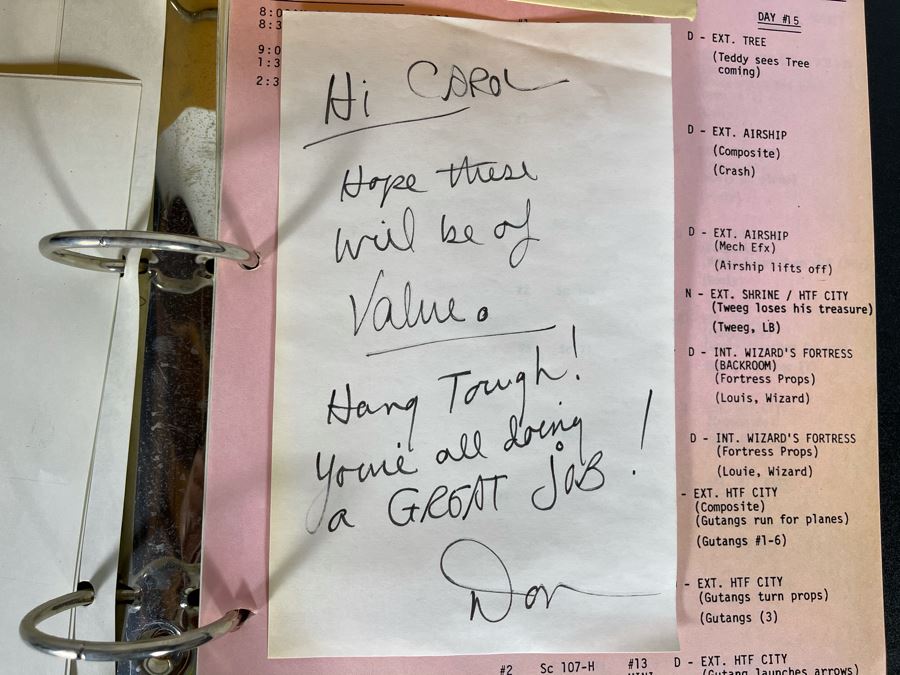 8:0
8:3
9:0
1:3
2:3
Hi CAROL
Hope these
will be of
Value.
Hang Tough!
You're all doing
a GREAT JOB!
Don
DAY #15
D - EXT. TREE
(Teddy sees Tree
coming)
D - EXT. AIRSHIP
(Composite)
(Crash)
D - EXT. AIRSHIP
(Mech Efx)
(Airship lifts off)
N - EXT. SHRINE / HTF CITY
(Tweeg loses his treasure)
(Tweeg, LB)
D - INT. WIZARD'S FORTRESS
(BACKROOM)
(Fortress Props)
(Louis, Wizard)
D - INT. WIZARD'S FORTRESS
(Fortress Props)
(Louie, Wizard)
- EXT. HTF CITY
(Composite)
(Gutangs run for planes)
(Gutangs #1-6)
- EXT. HTF CITY
(Gutangs turn props)
(Gutangs (3)
#2 Sc 107-H #13 D - EXT. HTF CITY
(Gutang launches arrows)